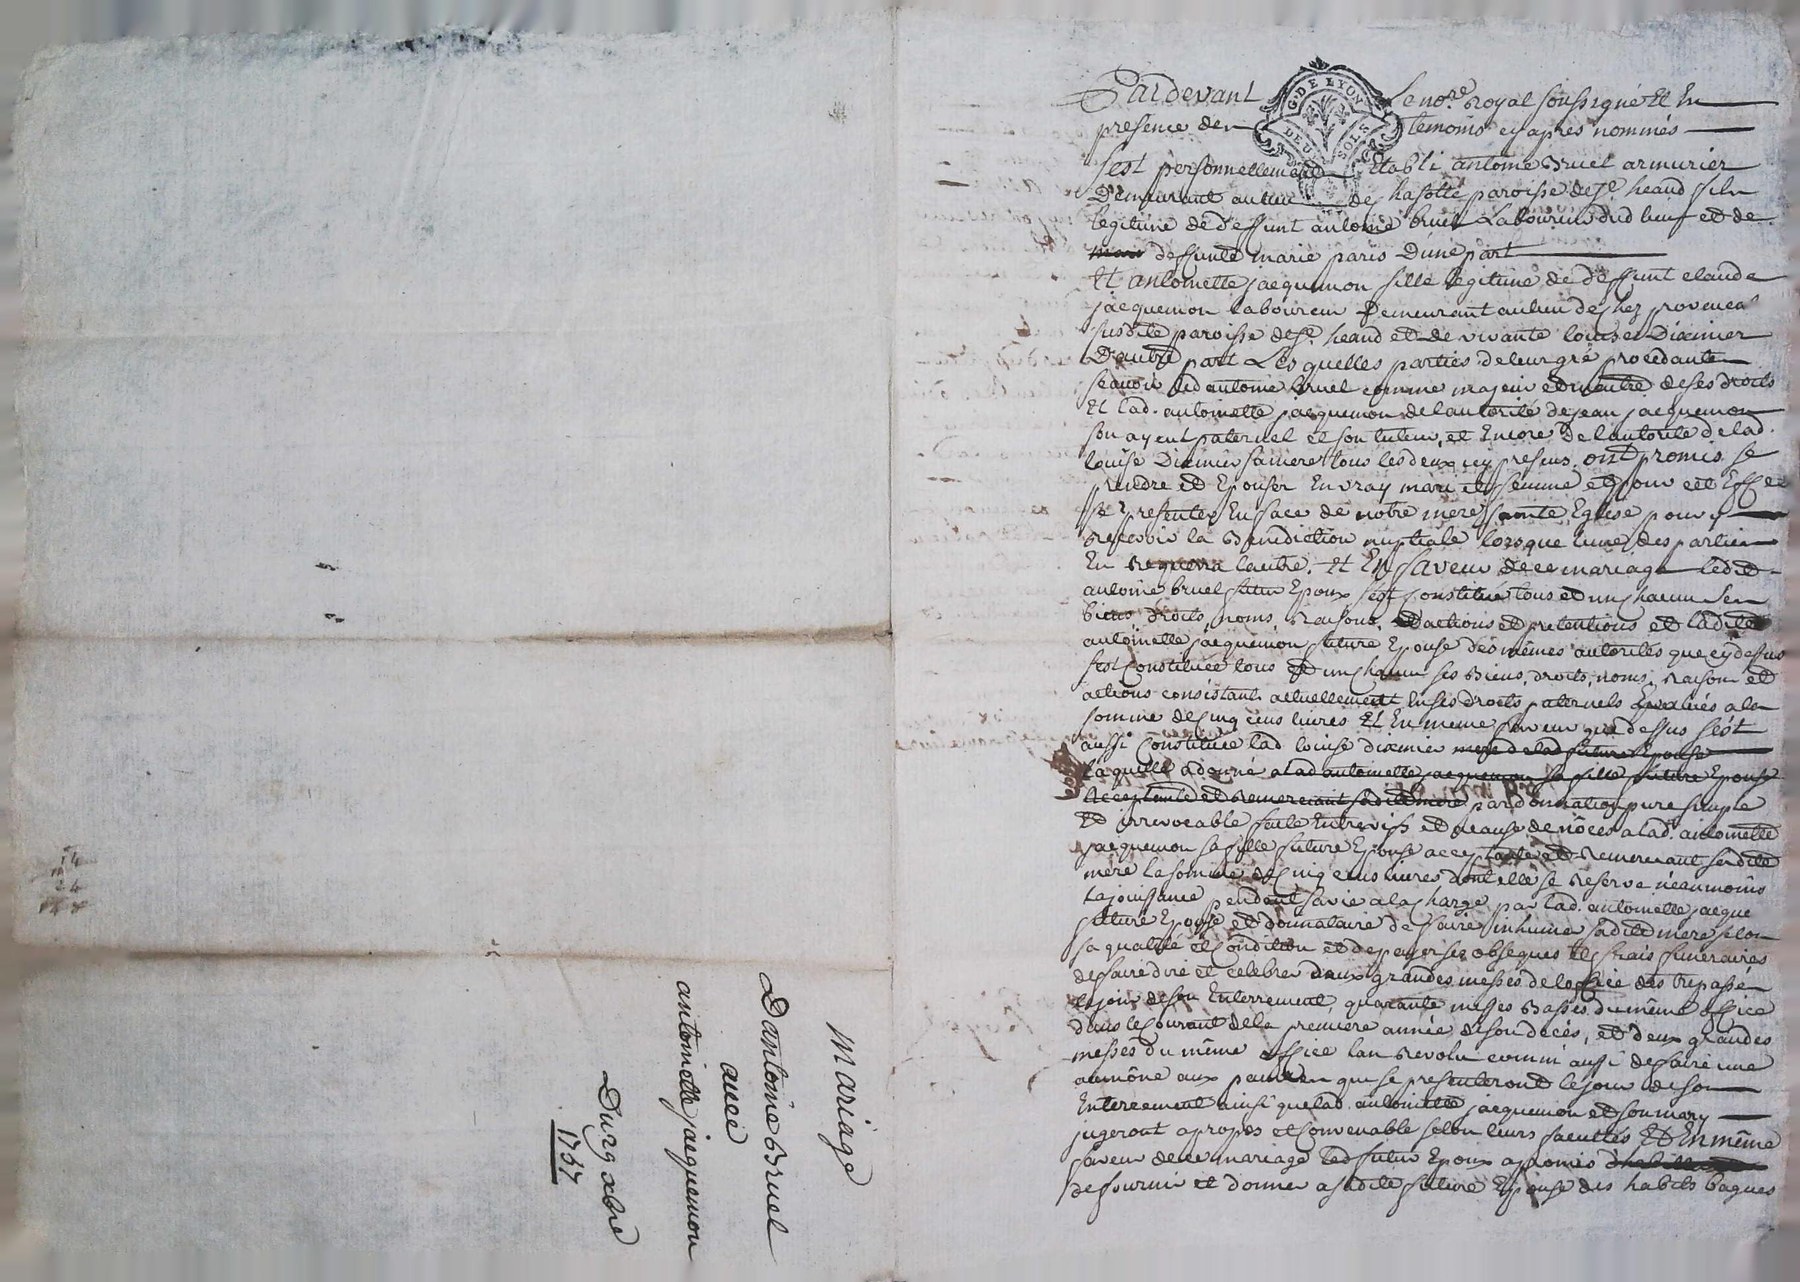 Pardevant Le no.re Royal soussigné Et En
G. DE LYON
DEUX SOLS
presence des temoins cy apres nommés
s'est personnellement Etabli antoine Bruel armurier
Demeurant au lieu de paroisse de St. heand fils
legitime de deffunt antoine bruel Laboureur dud lieu et de
deffunte marie paris D'une part
Et antoinette jacquemon fille legitime de deffunt claude
jacquemon laboureur Demeurant au lieu de chez provenca
susdite paroisse de St. heand et de vivante louise Diximier
D'autre part Lesquelles parties de leur gré procedantes
scavoir led antoine bruel comme majeur et maitre de ses droits
Et lad. antoinette jacquemon de l'autorité de jean jacquemon
son ayeul paternel et son tuteur, et Encore De l'autorité de lad.
louise Diximier sa mere tous les deux icy presens, ont promis se
prendre et Epouser En vray mari et femme et pour cet Effet
se presenter En face de notre mere sainte Eglise pour y
Recevoir la Benediction nuptiale lorsque l'une des parties
En Requerra l'autre. Et En faveur de ce mariage led
antoine bruel futur Epoux s'est Constitué tous et un chacun ses
biens, droits, noms, Raisons, et actions et pretentions et ladite
antoinette jacquemon future Epouse des mêmes autorités que cy dessus
s'est Constituée tous et un chacun ses Biens, droits, noms, Raisons et
actions consistant actuellement En ses droits paternels Evalués a la
somme de Cinq cens livres Et En meme faveur que dessus s'est
aussi Constituée lad louise diximier mere de lad future Epouse
Laquelle a donné a lad antoinette jacquemon sa fille future Epouse
acceptante et Remerciant sadite mere par donnation pure simple
Et irrevocable faite Entrevifs et a cause de nôces a lad. antoinette
jacquemon sa fille future Epouse acceptante et Remerciant sadite
mere la somme de Cinq cens livres dont elle se Reserve neanmoins
la jouissance pendant sa vie a la charge par lad. antoinette jacque
future Epouse et donnataire de faire inhumer sadite mere selon
sa qualité et Condition et de payer ses obseques et frais funeraires
de faire dire et celebrer deux grandes messes de l'office des trepassés
le jour de son Enterrement, quarante messes Basses du même office
dans le Courant de la premiere année de son decès, et deux grandes
messes du même office l'an Revolu comm' aussi de faire une
aumône aux pauvres qui se presenteront le jour de son
Enterrement ainsi que lad. antoinette jacquemon et son mary
jugeront apropos et Convenable selon leurs facultés Et En même
faveur de ce mariage led futur Epoux a promis
de fournir et donner a sadite future Epouse des habits bagues
Mariage
D'antoine Bruel
avec
antoinette jacquemon
Du 29 xbre
1767
14
24